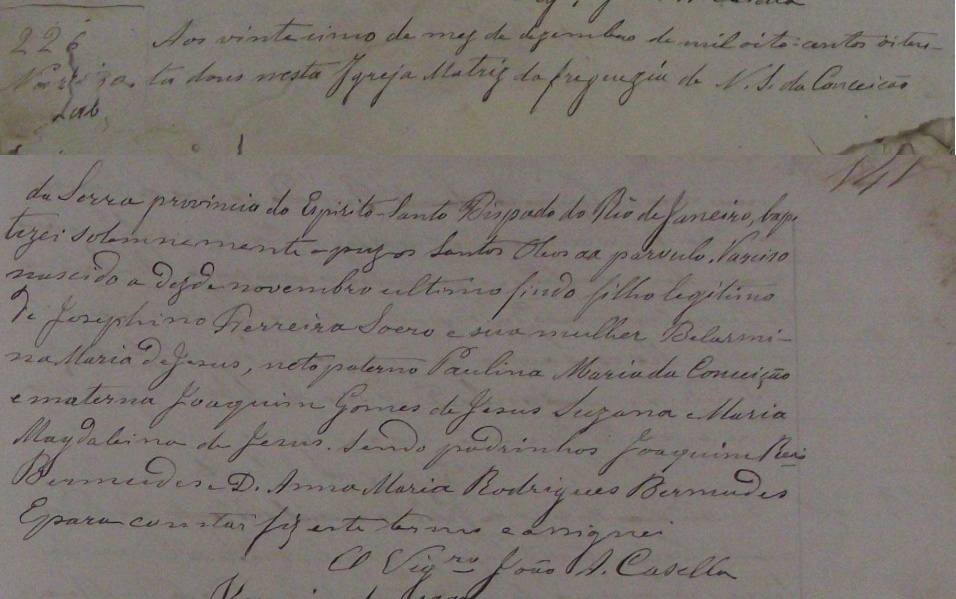 226 Aos vinte cinco de mez de dezembro de mil oito centos oiten-
ta dous nesta Igreja Matriz da freguezia de N. S. da Conceicão
141
da Serra provincia do Espirito-Santo Bispado do Rio de Janeiro, bap
tizei solemnemente e puz os Santos Oleos ao parvulo Narciso
nascido a dez de novembro ultimo findo filho legitimo
de Josephino Ferreira Soero e sua mulher Belarmi-
na Maria de Jesus, neto paterno Paulina Maria da Conceição
e materna Joaquim Gomes de Jesus Suzana e Maria
Magdaleina de Jesus. Sendo padrinhos Joaquim
Bermudes e D. Anna Maria Rodrigues Bermudes
E para constar fiz este termo e assignei
O Vigro João A. Casella